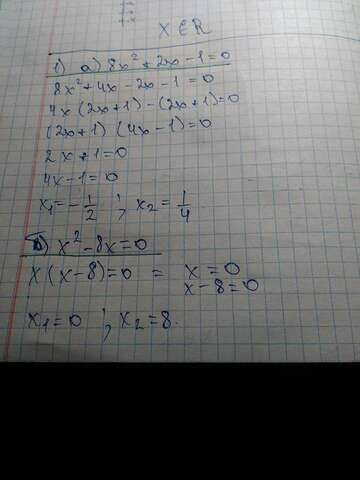 x ∈ R
1) a) 8x² + 2x - 1 = 0
8x² + 4x - 2x - 1 = 0
4x (2x+1) - (2x+1) = 0
(2x+1) (4x-1) = 0
2x + 1 = 0
4x - 1 = 0
x₁ = -1/2 ; x₂ = 1/4
b) x² - 8x = 0
x (x-8) = 0 = x = 0
x - 8 = 0
x₁ = 0 ; x₂ = 8.